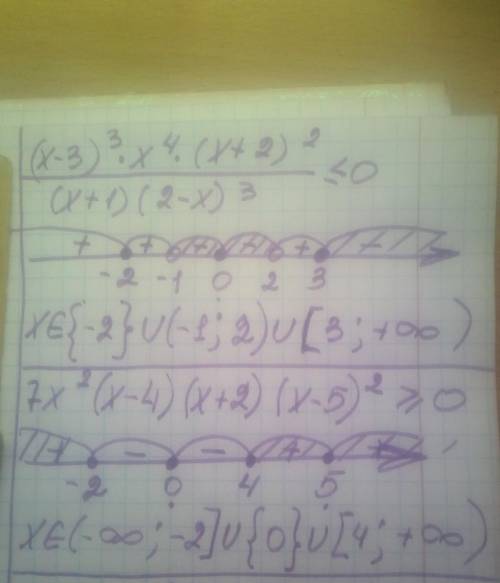 (x-3)³·x⁴·(x+2)² / (x+1)(2-x)³ ≤0
+ + + + + -
-2 -1 0 2 3
X∈{-2}∪(-1;2)∪[3;+∞)
7x²(x-4)(x+2)(x-5)²≥0
+ - - + +
-2 0 4 5
X∈(-∞;-2]∪{0}∪[4;+∞)